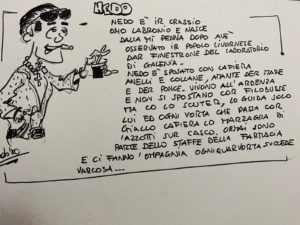 NEDO
NEDO E' IR CRASSIO
OMO LABRONIO E NASCE
DALLA MI PENNA DOPO AVE'
OSSERVATO IR POPOLO LIVORNESE
DAR FINESTRONE DEL LABORATORIO
DI GALENIA.
NEDO E' SPOSATO CON CAFIERA
ANELLI E COLLANE, AMANTE DER MARE
E DER PONCE. VIVONO ALL'ARDENZA
E NON SI SPOSTANO COR FILOBUSSE
MA CO LO SCUTER, LO GUIDA SOLO
LUI ED OGNI VORTA CHE PASSA COR
GIALLO CAFIERA LO
CAZZOTTI SUR CASCO. ORMAI SONO
PARTE DELLO STAFFE DELLA FARMACIA
E CI FANNO 'OMPAGNIA OGNIQUARVORTA SUCEDE
VARCOSA...